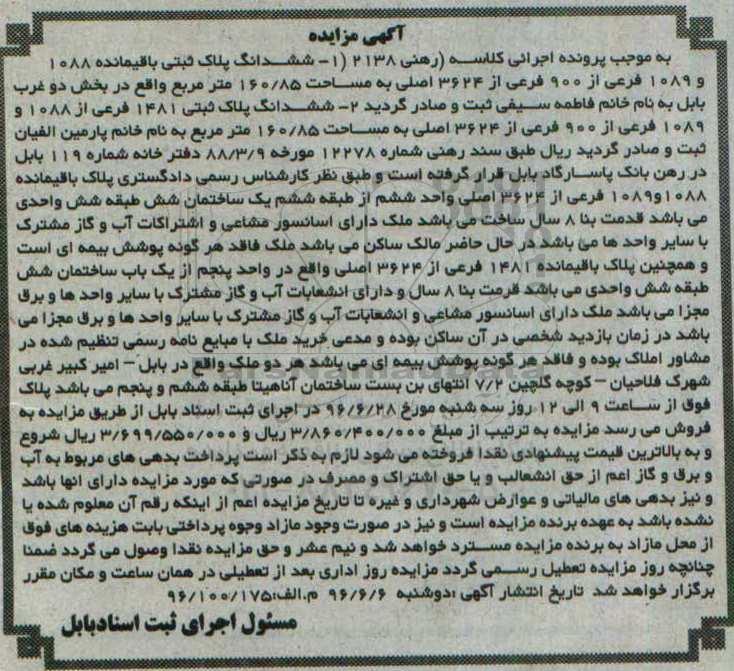 آگهی مزایده
به موجب پرونده اجرائی کلاسه (رهنی ۲۱۳۸ (۱- ششدانگ پلاک ثبتی باقیمانده ۱۰۸۸
و ۱۰۸۹ فرعی از ۹۰۰ فرعی از ۳۶۲۴ اصلی به مساحت ۱۶۰/۸۵ متر مربع واقع در بخش دو غرب
بابل به نام خانم فاطمه سیفی ثبت و صادر گردید ۲- ششدانگ پلاک ثبتی ۱۴۸۱ فرعی از ۱۰۸۸ و
۱۰۸۹ فرعی از ۹۰۰ فرعی از ۳۶۲۴ اصلی به مساحت ۱۶۰/۸۵ متر مربع به نام خانم پارمین الفیان
ثبت و صادر گردید ریال طبق سند رهنی شماره ۱۲۲۷۸ مورخه ۸۸/۳/۹ دفتر خانه شماره ۱۱۹ بابل
در رهن بانک پاسارگاد بابل قرار گرفته است و طبق نظر کارشناس رسمی دادگستری پلاک باقیمانده
۱۰۸۸و۱۰۸۹ فرعی از ۳۶۲۴ اصلی واحد ششم از طبقه ششم یک ساختمان شش طبقه شش واحدی
می باشد قدمت بنا ۸ سال ساخت می باشد ملک دارای اسانسور مشاعی و اشتراکات آب و گاز مشترک
با سایر واحد ها می باشد در حال حاضر مالک ساکن می باشد ملک فاقد هر گونه پوشش بیمه ای است
و همچنین پلاک باقیمانده۱۴۸۱ فرعی از ۳۶۲۴ اصلی واقع در واحد پنجم از یک باب ساختمان شش
طبقه شش واحدی می باشد قرمت بنا ۸ سال و دارای انشعابات آب و گاز مشترک با سایر واحد ها و برق
مجزا می باشد ملک دارای اسانسور مشاعی و انشعابات آب و گاز مشترک با سایر واحد ها و برق مجزا می
باشد در زمان بازدید شخصی در آن ساکن بوده و مدعی خرید ملک با مبایع نامه رسمی تنظیم شده در
مشاور املاک بوده و فاقد هر گونه پوشش بیمه ای می باشد هر دو ملک واقع در بابل – امیر کبیر غربی
شهرک فلاحیان – کوچه گلچین ۷/۲ انتهای بن بست ساختمان آناهیتا طبقه ششم و پنجم می باشد پلاک
فوق از ساعت ۹ الی ۱۲ روز سه شنبه مورخ ۹۶/۶/۲۸ در اجرای ثبت اسناد بابل از طریق مزایده به
فروش می رسد مزایده به ترتیب از مبلغ ۳/۸۶۰/۴۰۰/۰۰۰ ریال و ۳/۶۹۹/۵۵۰/۰۰۰ ریال شروع
و به بالاترین قیمت پیشنهادی نقدا فروخته می شود لازم به ذکر است پرداخت بدهی های مربوط به آب
و برق و گاز اعم از حق انشعالب و یا حق اشتراک و مصرف در صورتی که مورد مزایده دارای انها باشد
و نیز بدهی های مالیاتی و عوارض شهرداری و غیره تا تاریخ مزایده اعم از اینکه رقم آن معلوم شده یا
نشده باشد به عهده برنده مزایده است و نیز در صورت وجود مازاد وجوه پرداختی بابت هزینه های فوق
از محل مازاد به برنده مزایده مسترد خواهد شد و نیم عشر و حق مزایده نقدا وصول می گردد ضمنا
چنانچه روز مزایده تعطیل رسمی گردد مزایده روز اداری بعد از تعطیلی در همان ساعت و مکان مقرر
برگزار خواهد شد تاریخ انتشار آگهی :دوشنبه ۹۶/۶/۶ م.الف:۹۶/۱۰۰/۱۷۵
مسئول اجرای ثبت اسنادبابل